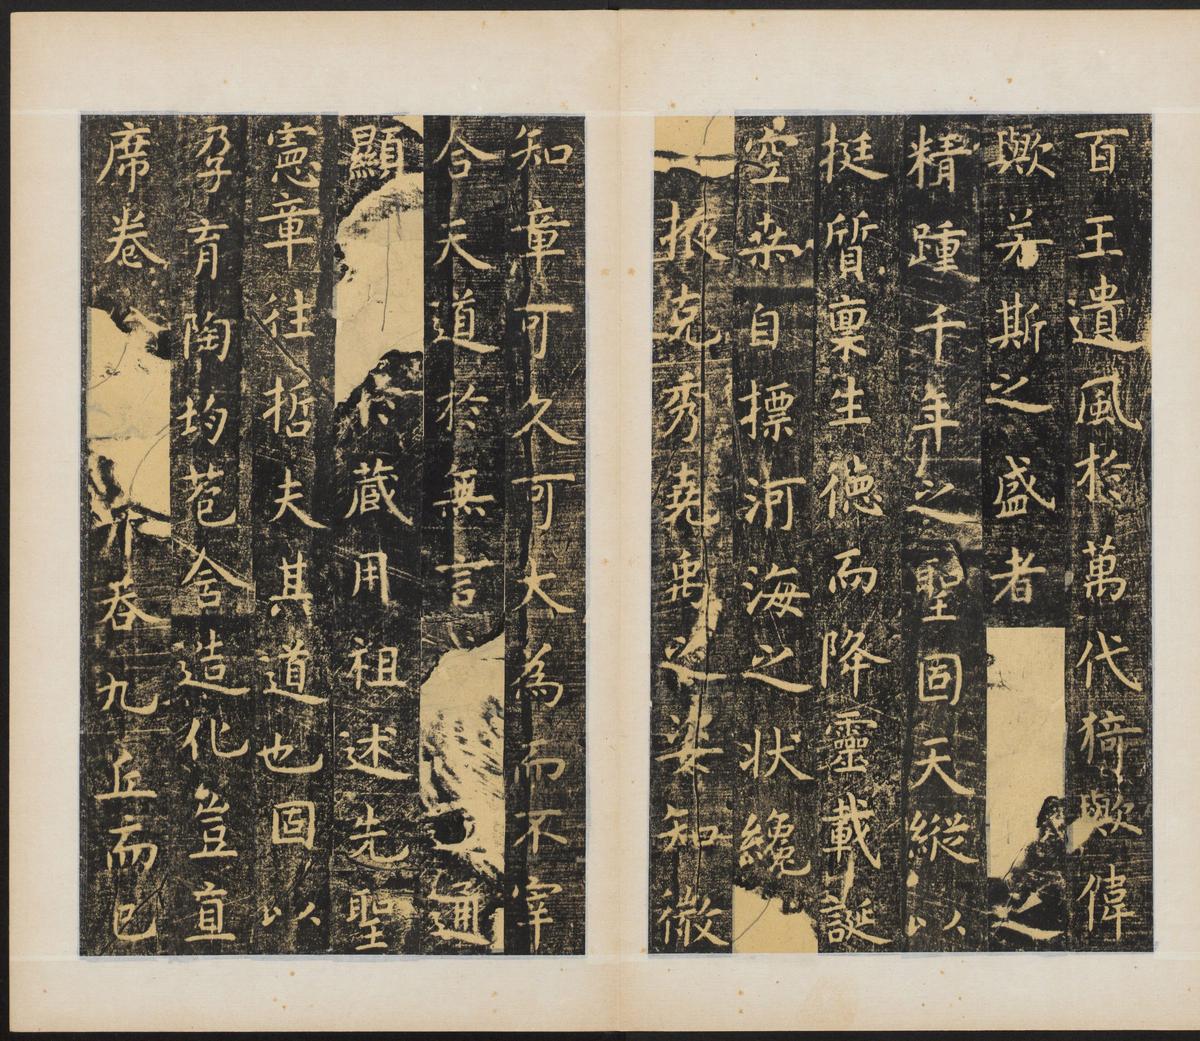 百王遺風於萬代猗歟偉
歟若斯之盛者之
精踵千年之聖固天縱以
挺質稟生德而降靈載誕
空桑自摽河海之狀纔
掖克秀堯禹之姿知微
知章可久可大為而不宰
合天道於無言通
顯於藏用祖述先聖
憲章往哲夫其道也固以
孕育陶均苞含造化豈直
席卷八吞九丘而已